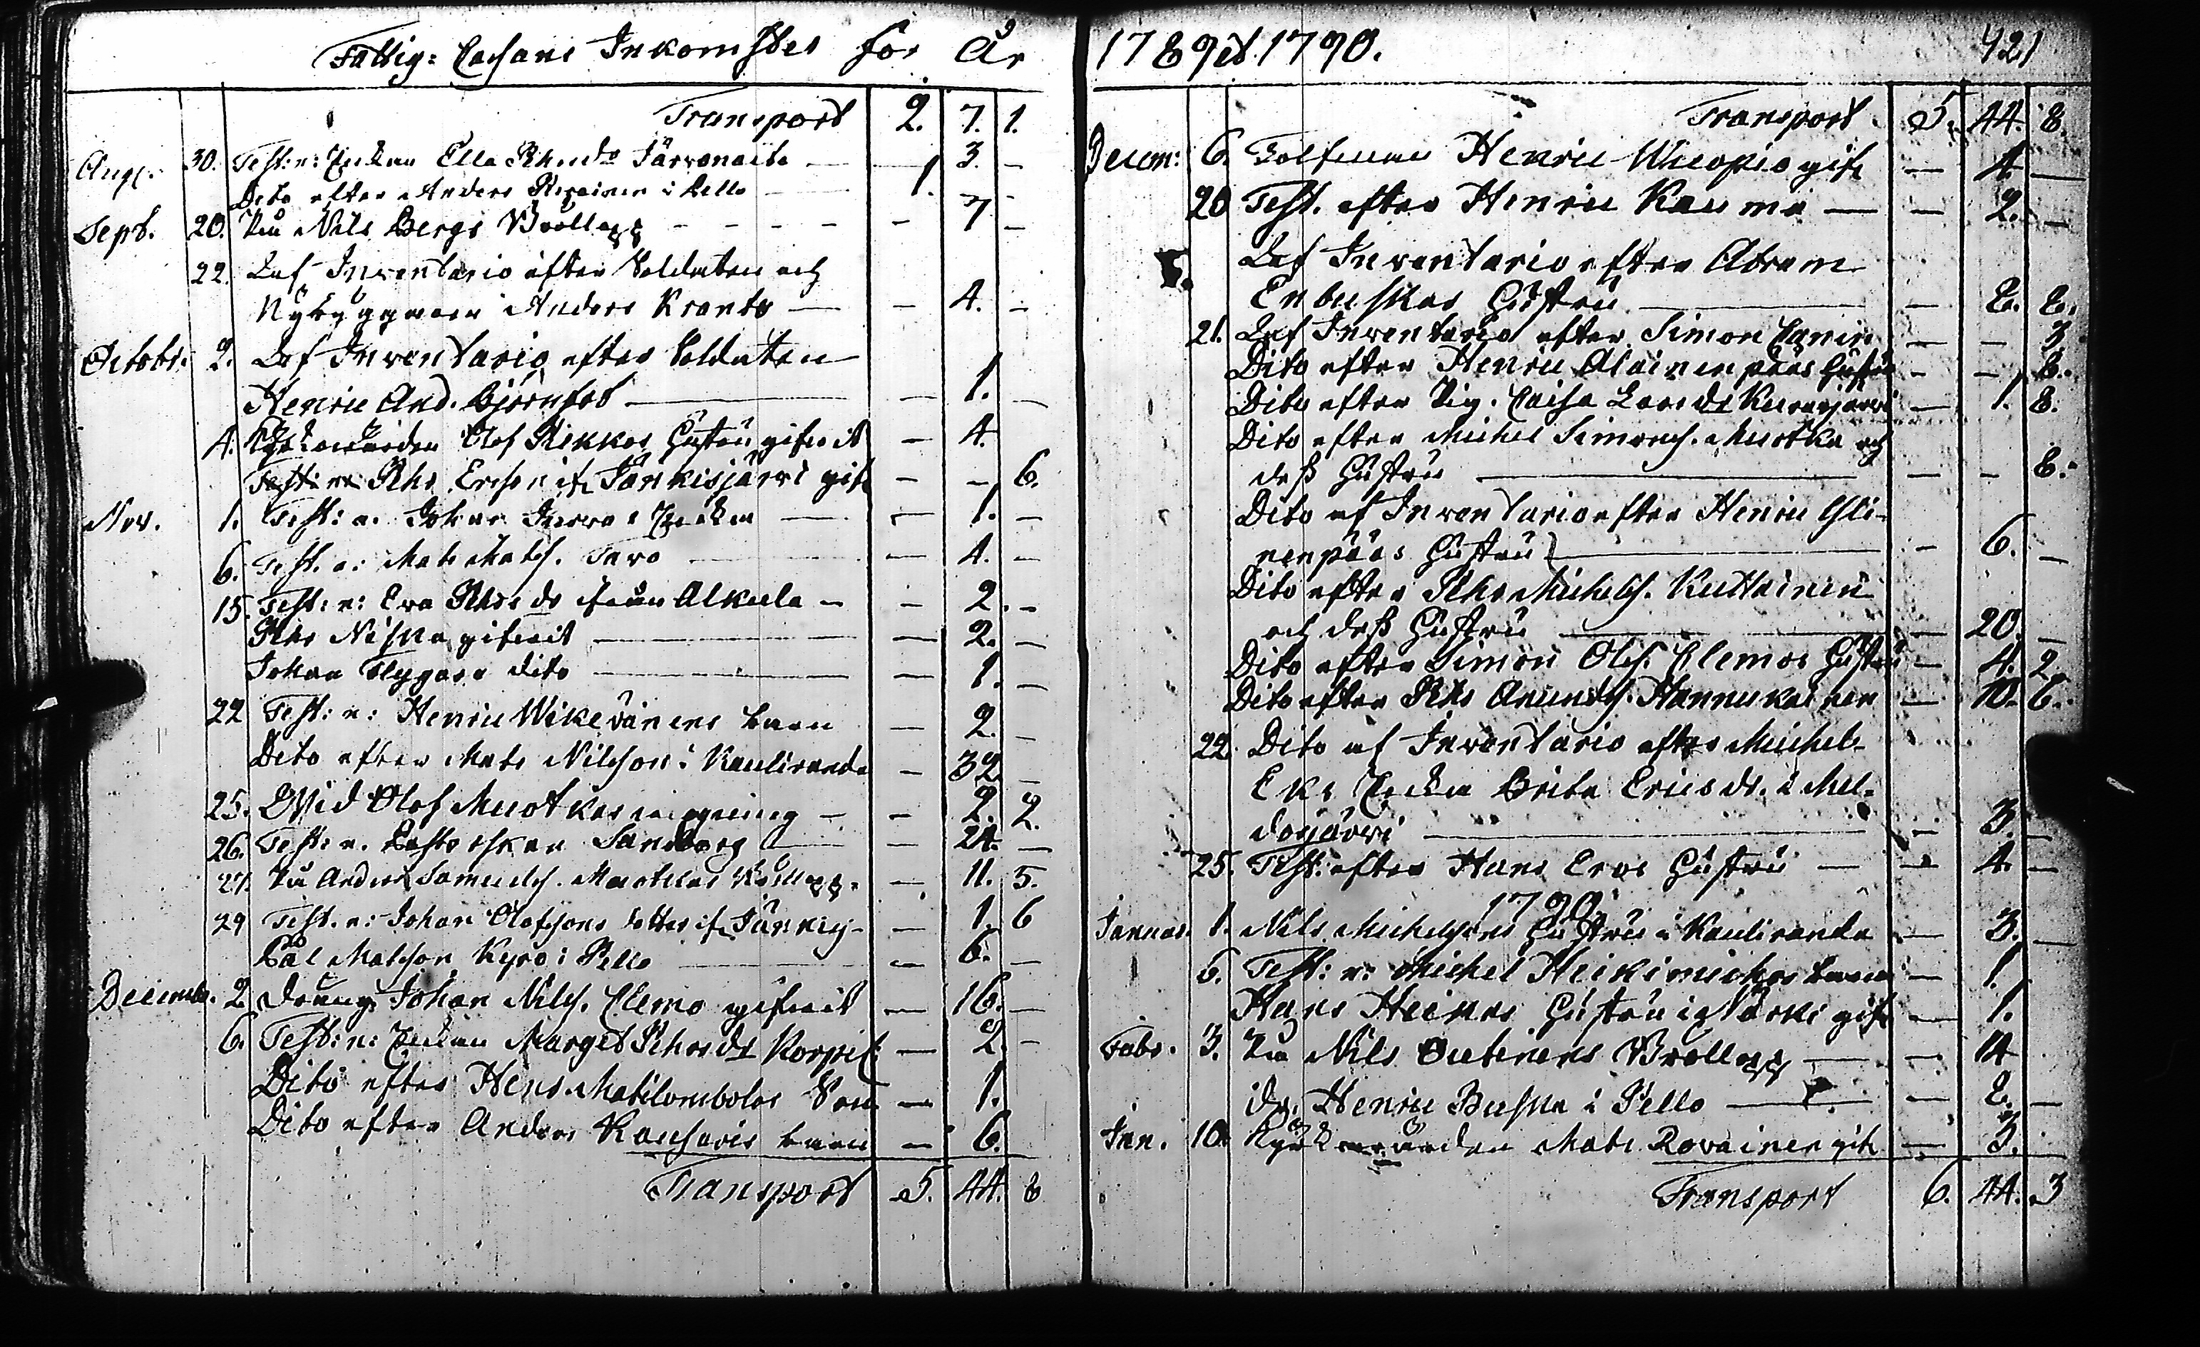 Fattig: Cassans Inkomster för År
Transport 2. 7. 1.
Aug. 30. Test: n: Enkan Ella Phrsdr Järvonaita — 3. —
Dito efter Anders i Pello — 1. — —
Sept. 20. Nils Bergs Bröllopp — 7 —
22. Af Inventario efter Soldaten och
Nybyggaren Anders Krants — — 4. —
Octobr: 2. Af Inventario efter Soldaten
Henric And. Björnfot — — 1. —
4. Olof Rikkos Hustru gifvit — 4.
Test: n: Phr Ersson if: Jänkisjärvi gift — — 6.
Nov. 1. Test: n. Johan Enkan — — 1. —
6. Test. n: Mats Mats. Taro — 4. —
15. Test: n: Eva Phrs dr från Alkula — — 2. —
Phr Niska gifvit — — 2. —
Johan Flygare dito — — 1. —
22 Test: n: Henric Wikevänens barn — 2. —
Dito efter Mats Nilsson i Kauliranda — 32. —
25. Wid Olof Muotkas — — 2. 2.
26. Test: n. Sandberg — — 24. —
27. Anders Samuels. Bröllopp. — 11. 5.
29 Test. n: Johan Olofssons dotter if. Jänkisj — 1. 6
Pål Matsson Kyrö i Pello — — 6. —
Decembr. 2. Dräng. Johan Nils. Clemo gifvit — 16. —
6. Test: n: Enkan Marget Phrs dr Korpik: — 2. —
Dito efter Hens. Matilombolos Son — 1.
Dito efter Anders Kauharis barn — 6.
Transport 5. 44. 8
1789 et 1790. 421
Transport 5. 44. 8.
Decem: 6. Henric Wuopio gift — 4. —
20 Test. efter Henric Kauma — — 2. —
Af Inventario efter Abram
Enbuskas Hustru — — 8. 8.
21. Af Inventario efter Simon — — 3
Dito efter Henric Alainenpääs Hustru — — 8.
Dito efter Pig. Caisa Lars dr Kurajärvi — 1. 8.
Dito efter Michel Simons. Muotka och
dess Hustru — — — 8.
Dito af Inventario efter Henric Yli-
nenpääs Hustru — — 6. —
Dito efter Phr Michels. Kuttainen
och dess Hustru — — 20. —
Dito efter Simon Ols. Clemos Hustru — 4. 2
Dito efter Phr Anunds. Hannukainen — 10. 6.
22. Dito af Inventario efter Michel
Eks Enkan Brita Erics dr. i Mel-
dosjärvi — — 3. —
25. Test: efter Hans Ers Hustru — — 4. —
1790.
Januar. 1. Nils Michelssons Hustru i Kauliranda — 3. —
6. Test: n: Michel Heikimickos barn — 1.
Hans Heinos Hustru i Närki gift — 1.
Febr. 3. Nils Outinens Bröllopp — — 14
do. Henric Buska i Pello — — 2. —
Jan. 10. Mats Rovainen gift — 3.
Transport 6. 44. 3